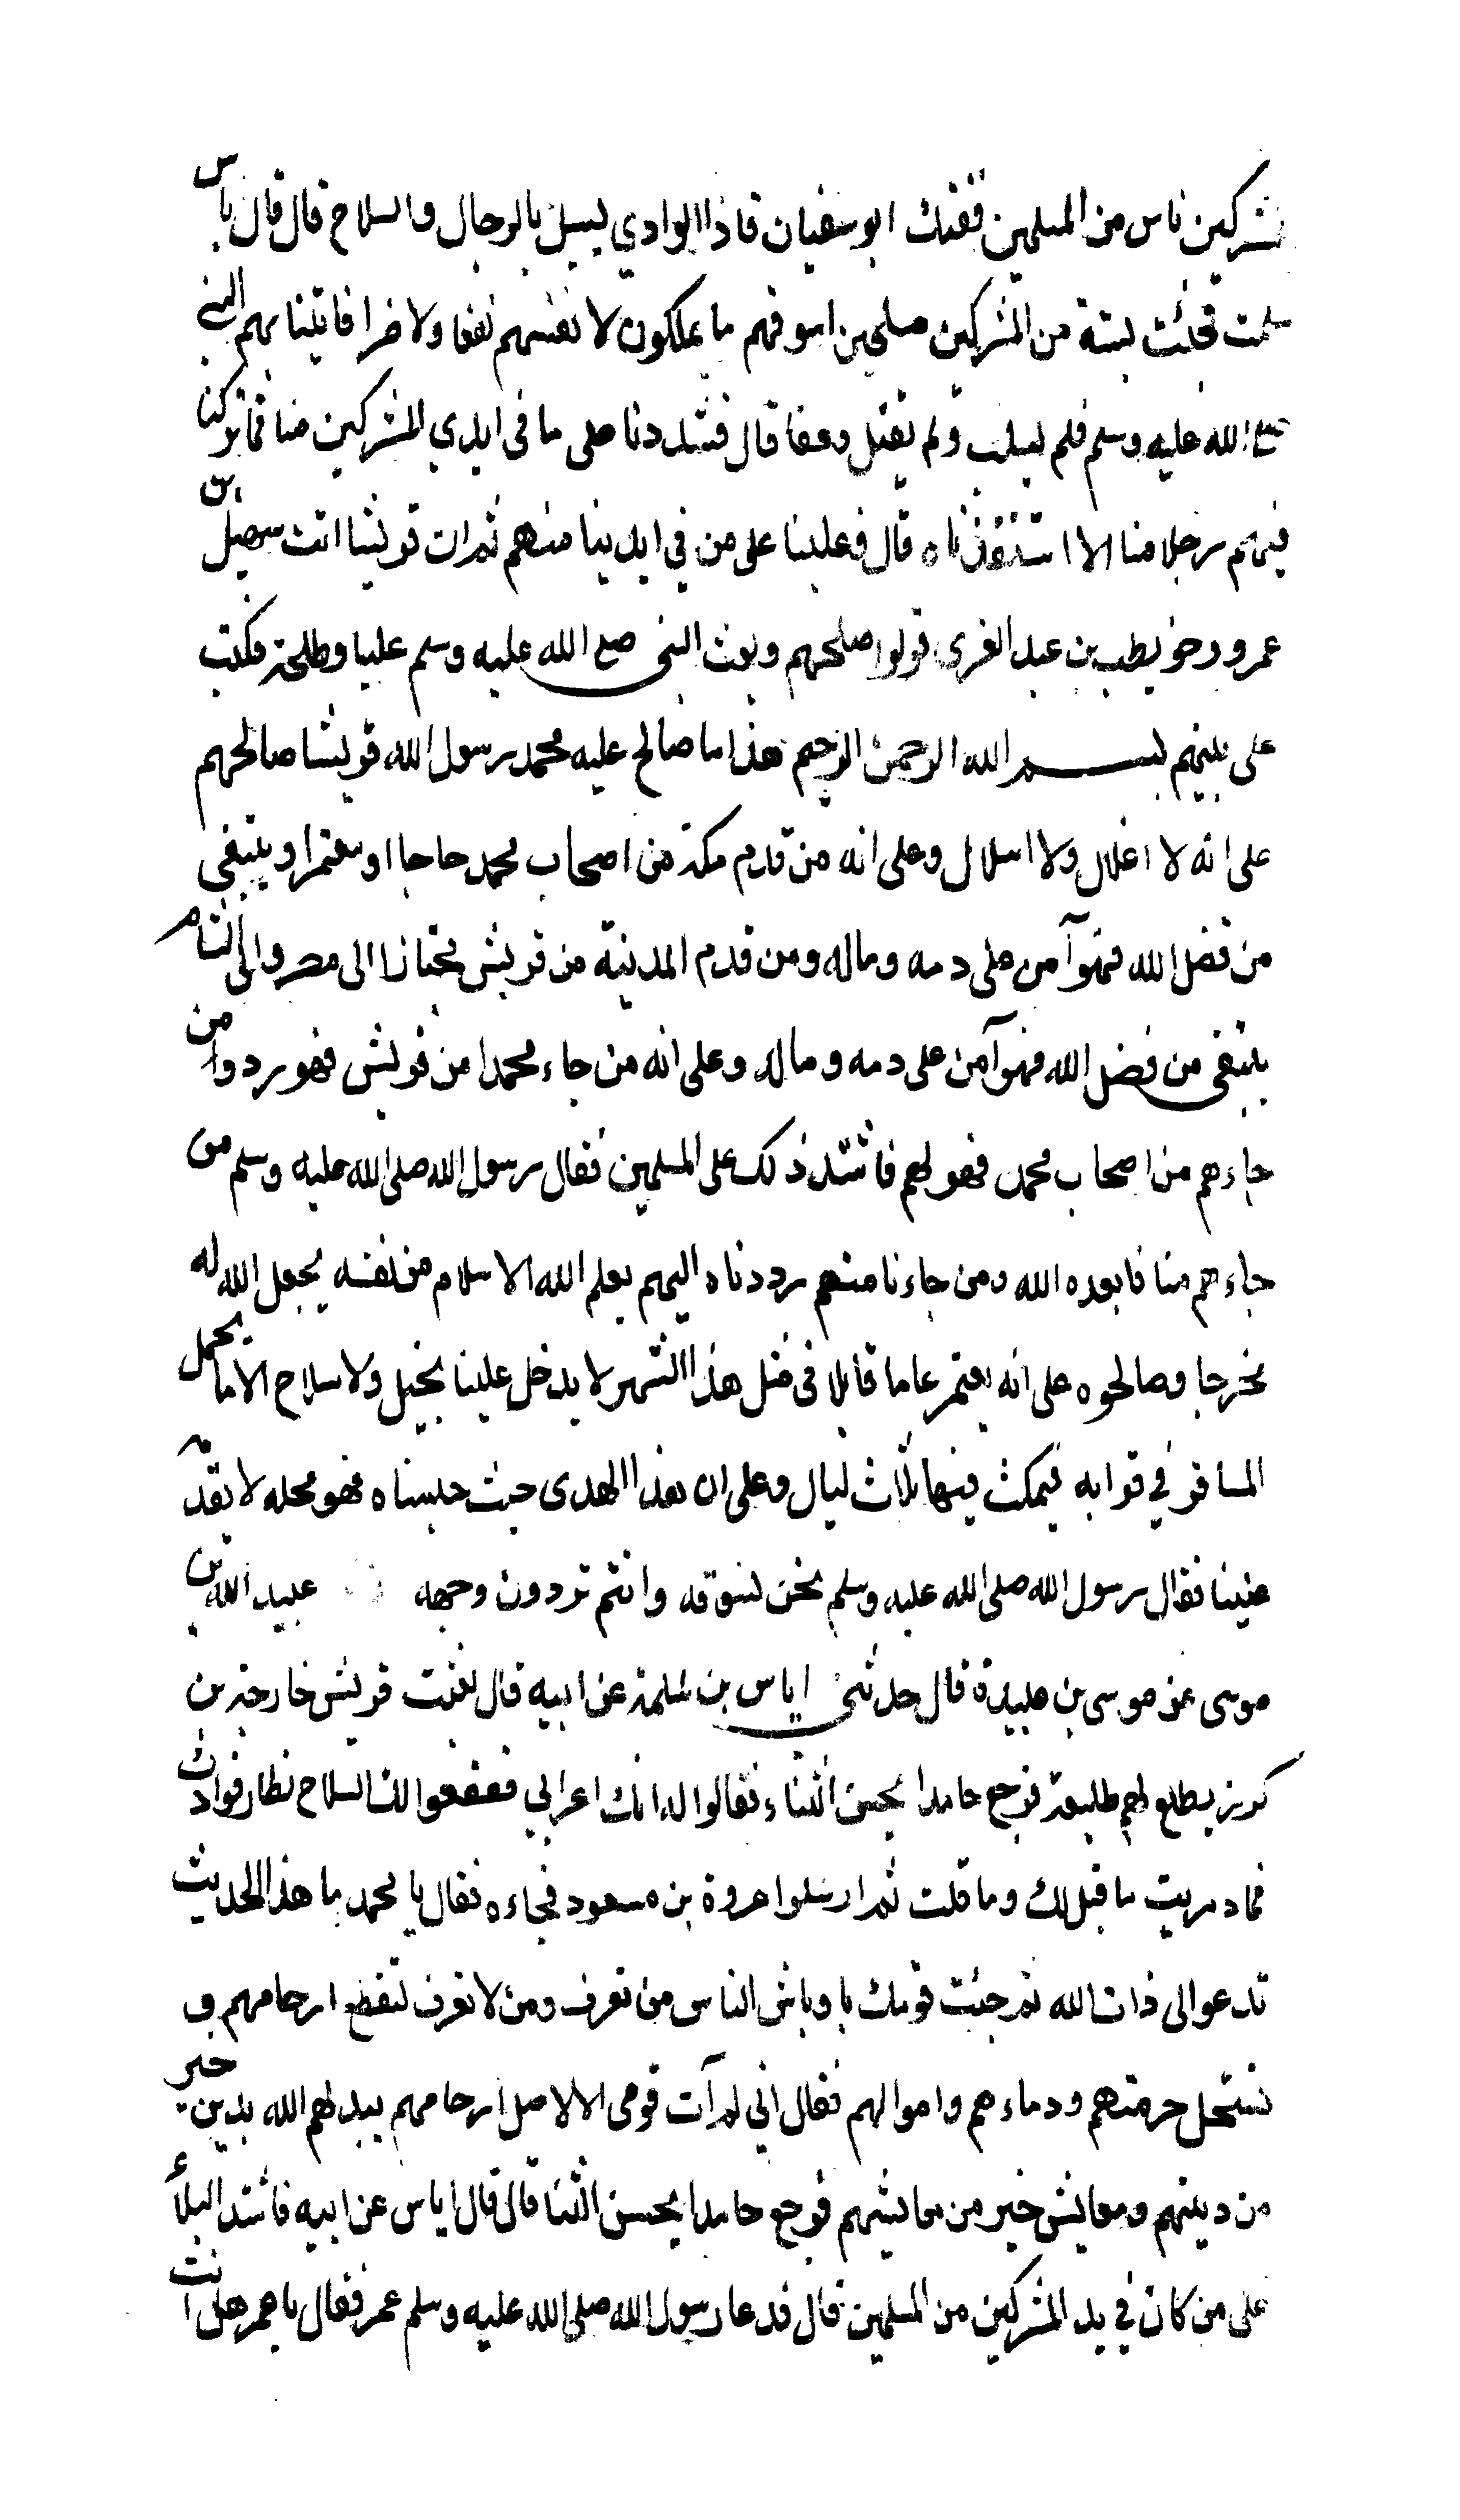 المشركين ناس من المسلمين ففتك ابو سفيان فاذا الوادي يسيل بالرجال والسلاح قال قال اياس
سلمت فجئت بستة من المشركين مسلحين اسوقهم ما يملكون لانفسهم نفعا ولا ضرا فاتينا بهم النبي
صلى الله عليه وسلم فلم يسلب ولم يقتل وعفا قال فشددنا على ما في ايدي المشركين منا فما تركنا
فيهم رجلا منا الا استنقذناه قال فغلبنا على من في ايدينا منهم ثم ان قريشا اتت سهيل بن
عمرو وحويطب بن عبد العزى فولوا صلحهم وبعث النبي صلع الله عليه وسلم عليا وطلحة فكتب
على بينهم بسم الله الرحمن الرحيم هذا ما صالح عليه محمد رسول الله قريشا صالحهم
على انه لا اغلال ولا اسلال وعلى انه من قدم مكة من اصحاب محمد حاجا او معتمرا ويبتغي
من فضل الله فهو آمن على دمه وماله ومن قدم المدينة من قريش مجتازا الى مصر والى الشام
يبتغي من فضل الله فهو آمن على دمه وماله وعلى انه من جاء محمدا من قريش فهو رد ومن
جاءهم من اصحاب محمد فهو لهم فاشتد ذلك على المسلمين فقال رسول الله صلى الله عليه وسلم من
جاءهم منا فابعده الله ومن جاءنا منهم رددناه اليهم يعلم الله الاسلام من نفسه يجعل الله له
مخرجا وصالحوه على انه يعتمر عاما قابلا في مثل هذا الشهر لا يدخل علينا بخيل ولا سلاح الا ما يحمل
المسافر في قرابه فيمكث فيها ثلاث ليال وعلى ان هذا الهدى حيث حبسناه فهو محله لا يقدمه
علينا فقال رسول الله صلى الله عليه وسلم نحن نسوقه وانتم تردون وجهه عبيد الله بن
موسى عن موسى بن عبيدة قال حدثني اياس بن سلمة عن ابيه قال بعثت قريش خارجة بن
كرز يطلع لهم طليعة فرجع حامدا بحسن الثناء فقالوا له انك اعرابي قعقعوا لك السلاح فطار فوادك
فما دريت ما قيل لك وما قلت ثم ارسلوا عروة بن مسعود فجاءه فقال يا محمد ما هذا الحديث
تدعو الى ذات الله ثم جئت قومك باوباش الناس من تعرف ومن لا تعرف لتقطع ارحامهم و
تستحل حرمتهم ودماءهم واموالهم فقال اني لم آت قومي الا لاصل ارحامهم يبدلهم الله بدين خير
من دينهم ومعايش خير من معايشهم فرجع حامدا بحسن الثنا قال قال اياس عن ابيه فاشتد البلأ
على من كان في يد المشركين من المسلمين قال فدعا رسول الله صلى الله عليه وسلم عمر فقال يا عمر هل انت